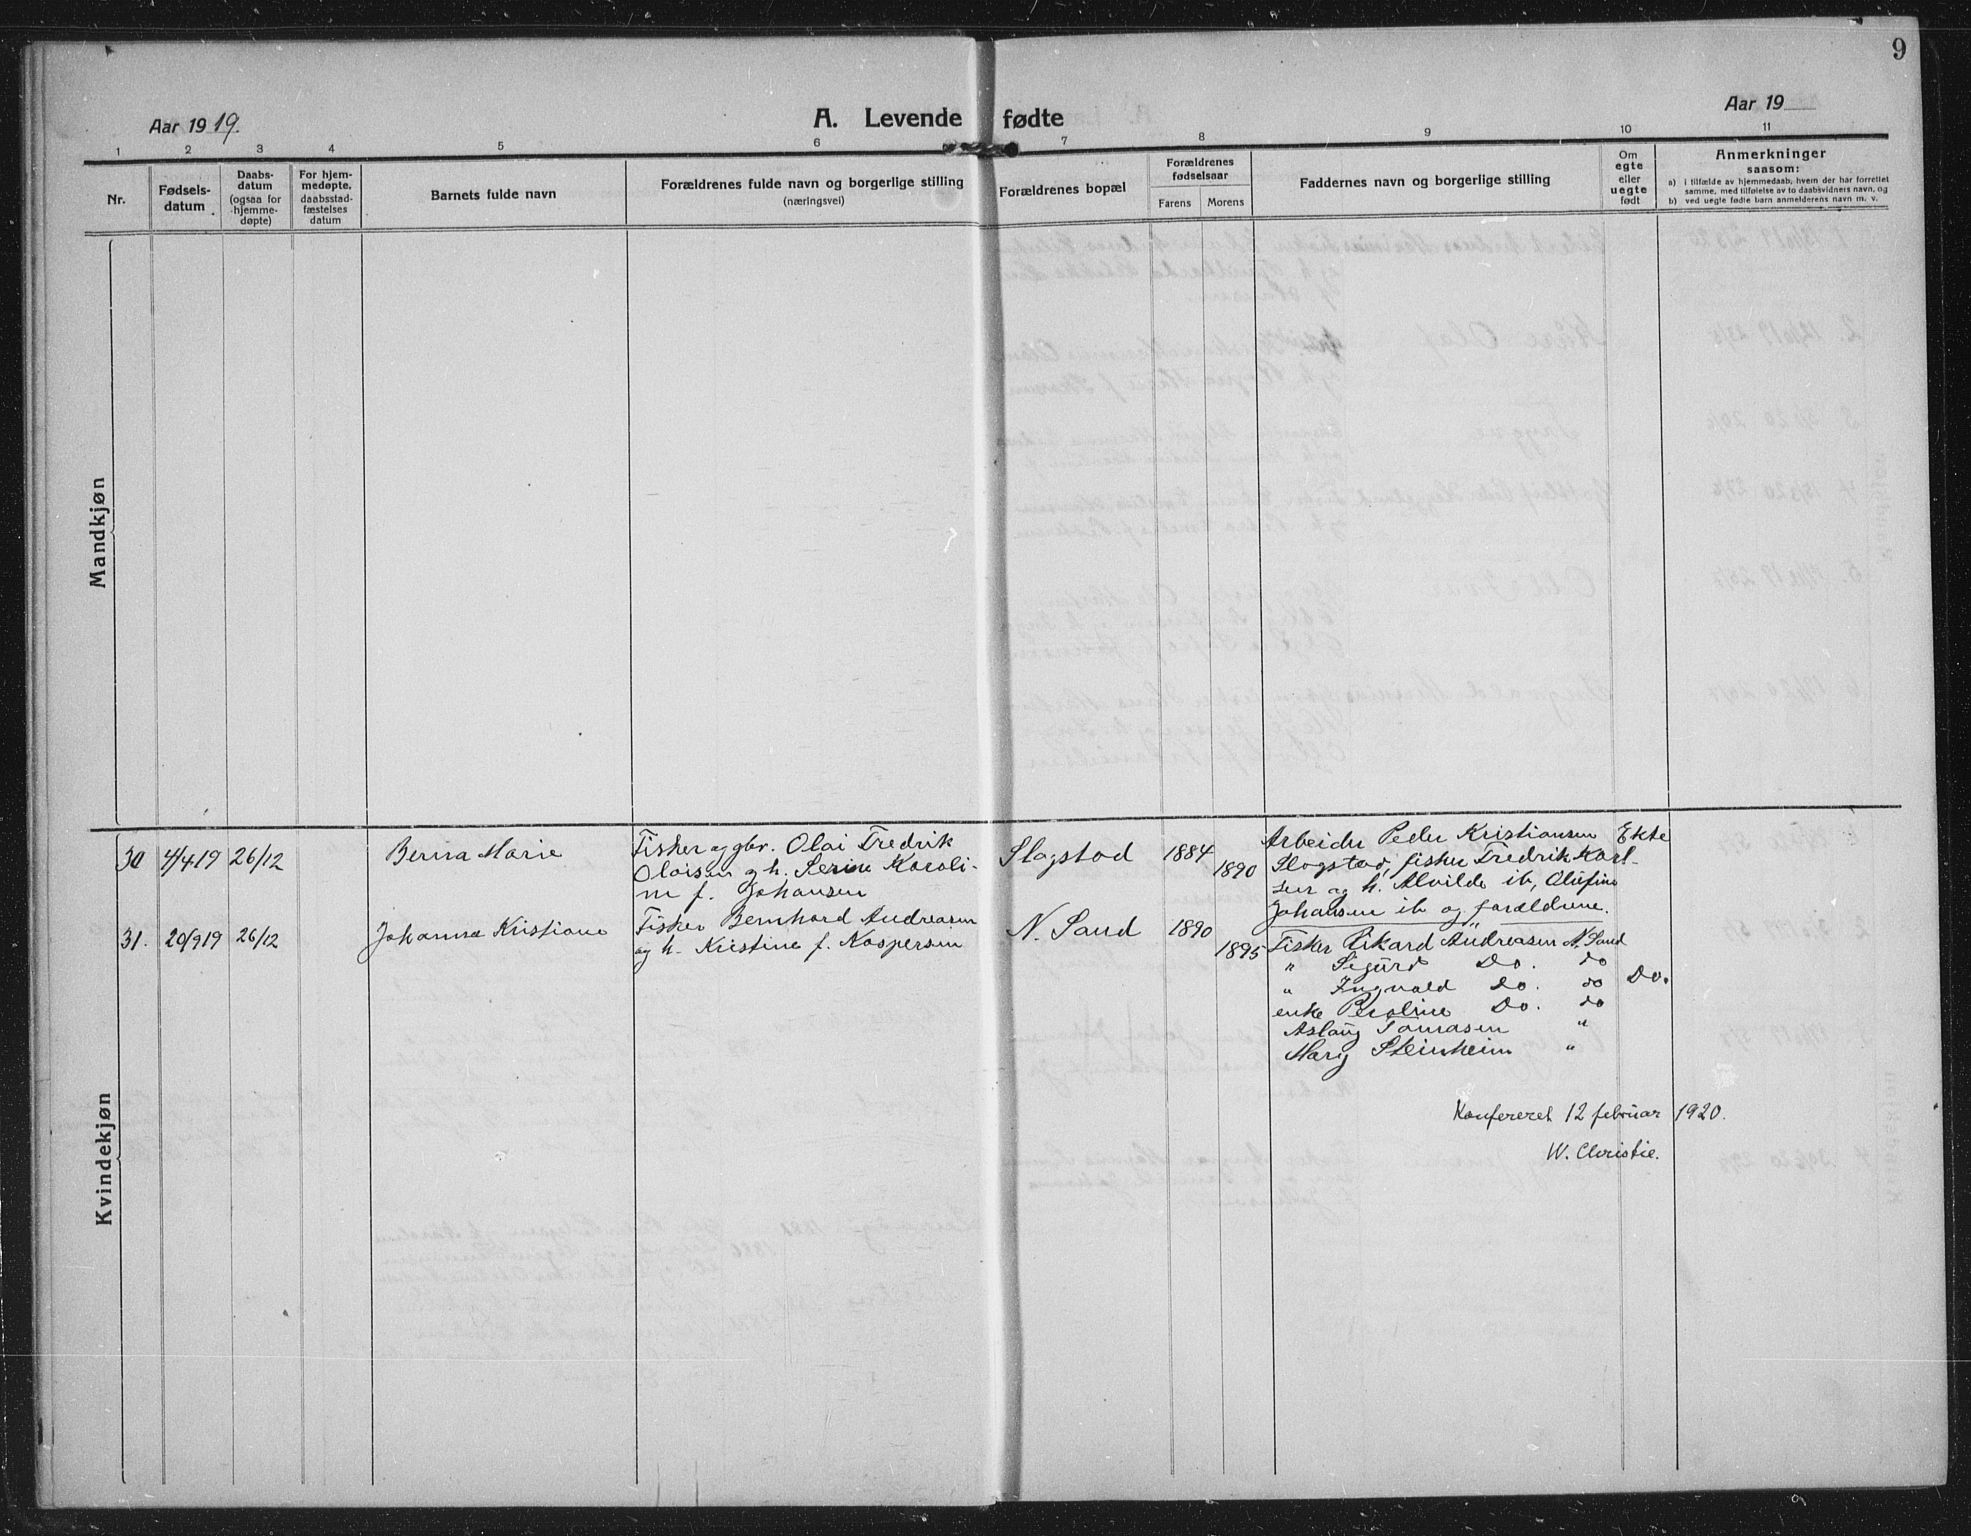 9
Aar 1919.
A. Levende fødte
Aar 19
1 2 3 4 5 6 7 8 9 10 11
Nr.
Fødsels-
datum
Daabs-
datum
(ogsaa for
hjemme-
døpte)
For hjem-
medøpte,
daabsstad-
fæstelses
datum
Barnets fulde navn
Forældrenes fulde navn og borgerlige stilling
(næringsvei)
Forældrenes bopæl
Forældrenes
fødselsaar
Farens Morens
Faddernes navn og borgerlige stilling
Om
egte
eller
uegte
født
Anmerkninger
saasom:
a) i tilfælde av hjemmedaab, hvem der har forrettet
samme, med tilføielse av to daabsvidners navn, og
b) ved uegte fødte barn anmelderens navn m. v.
Mandkjøn
Kvindekjøn
30 4/4 19 26/12 Berna Marie
Fisker og gbr. Olai Fredrik
Olaisen og h. Serine Karoli-
ne f. Johansen
Slagstad 1884
1890
Arbeider Peder Kristiansen
Slagstad, fisker Fredrik Karl-
sen og h. Alvilde ib, Olufine
Johansen ib og forældrene.
Ekte
31. 20/9 19 26/12 Johanna Kristiane
Fisker Bernhard Andreasen
og h. Kristine f. Kaspersen
N. Sand 1890
1895
Fisker Rikard Andreasen N. Sand
" Sigurd Do. do
" Ingvald Do. do
enke Peroline Do. do
Aslaug Tomasen "
Mary Steinheim "
Do.
Konfereret 12 februar 1920.
W. Christie.